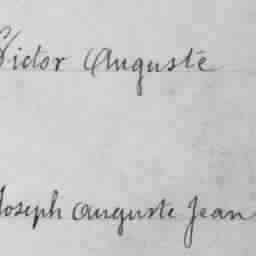 Victor Auguste
Joseph Auguste Jean